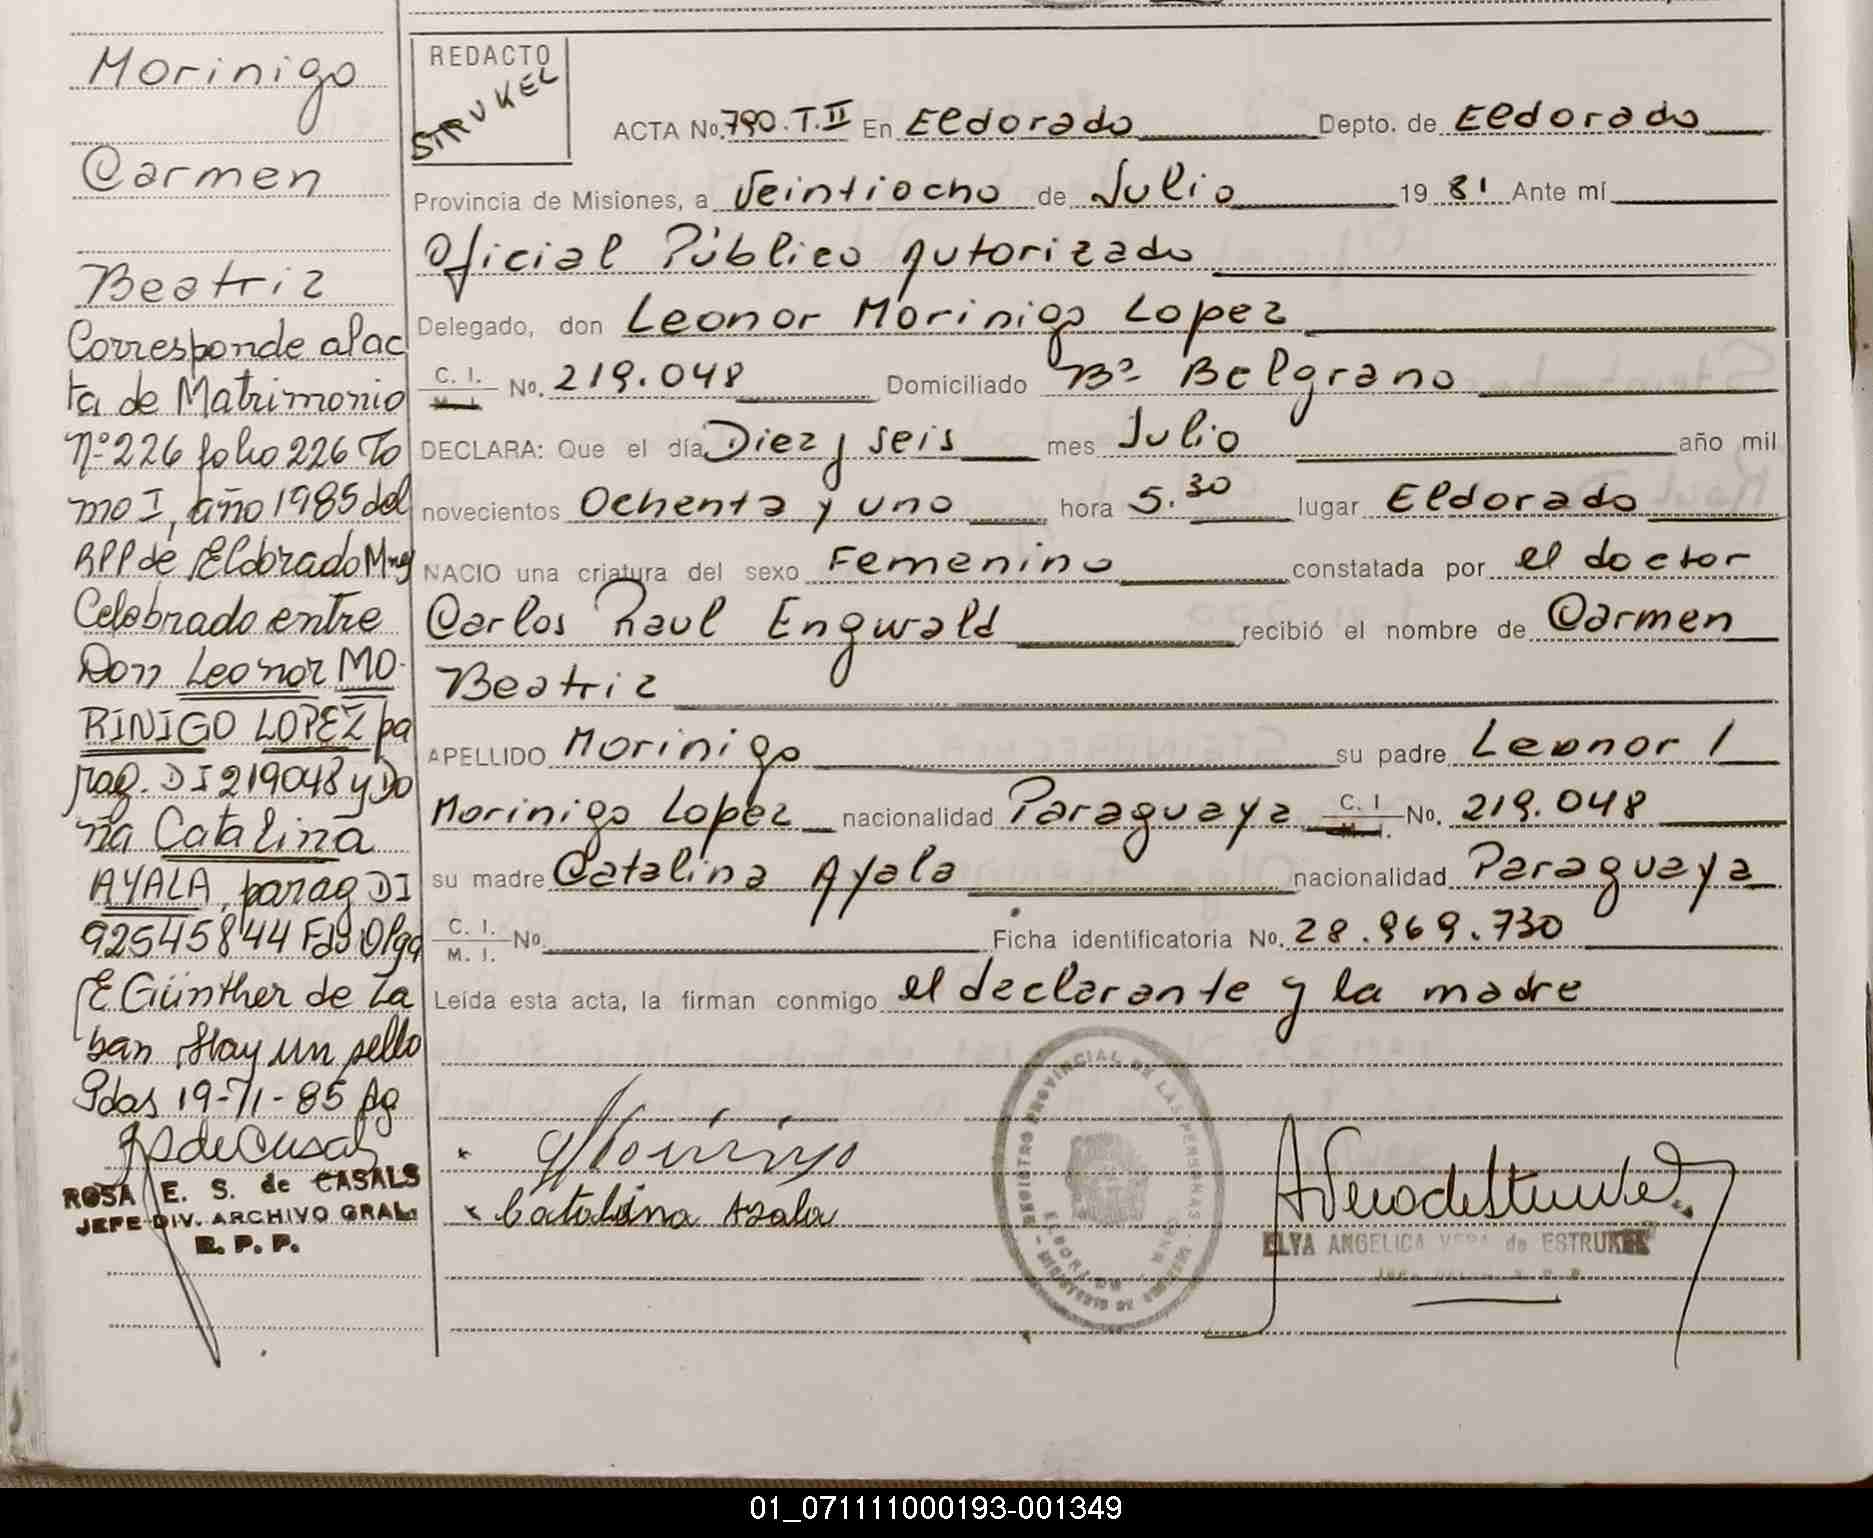 Morinigo
Carmen
Beatriz
Corresponde al ac
ta de Matrimonio
Nº 226 folio 226 To
mo I, año 1985 del
RPP de Eldorado Mnes
Celebrado entre
Don Leonor MO-
RINIGO LOPEZ pa
rag. DI 219048 y Do
ña Catalina
AYALA, parag DI
92545844 Fdo Olga
E. Günther de Za
ban Hay un sello
Pdas 19-11-85
ROSA E. S. de CASALS
JEFE DIV. ARCHIVO GRAL.
R. P. P.
REDACTO
STRUKEL
ACTA No. 790. T. II En Eldorado Depto. de Eldorado
Provincia de Misiones, a Veintiocho de Julio 19 81 Ante mí
Oficial Público Autorizado
Delegado, don Leonor Morinigo Lopez
C. I. M. I. No. 219.048 Domiciliado Bº Belgrano
DECLARA: Que el día Diez y seis mes Julio año mil
novecientos Ochenta y uno hora 5.30 lugar Eldorado
NACIO una criatura del sexo Femenino constatada por el doctor
Carlos Raul Engwald recibió el nombre de Carmen
Beatriz
APELLIDO Morinigo su padre Leonor /
Morinigo Lopez nacionalidad Paraguaya C. I. M. I. No. 219.048
su madre Catalina Ayala nacionalidad Paraguaya
C. I. M. I. No Ficha identificatoria No. 28.969.730
Leída esta acta, la firman conmigo el declarante y la madre
Morinigo
Catalina Ayala
REGISTRO PROVINCIAL DE LAS PERSONAS
ELDORADO
ELVA ANGELICA VERA de ESTRUKEL
01_071111000193-001349